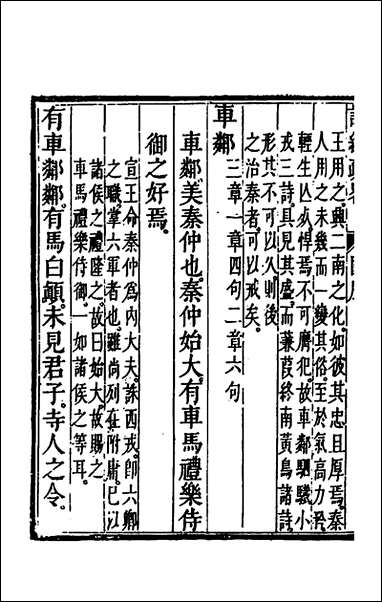 王用之興二南之化如彼其忠且厚焉秦
人用之未幾而一變其俗至於氣高力勇
輕生仧死悍焉不可嚮犯故車鄰駟驖小
戎三詩具見其盛而蒹葭終南黃鳥諸詩
形其不可以久則後
之治秦者可以戒矣
車鄰三章一章四句二章六句
車鄰美秦仲也秦仲始大有車馬禮樂侍
御之好焉
宣王命秦仲爲內大夫誅西戎卽六卿
之職掌六軍者也雖尚列在附庸已以
諸侯之禮隆之故曰始大故賜之
車馬禮樂侍御一如諸侯之等耳
有車鄰鄰有馬白顛未見君子寺人之令